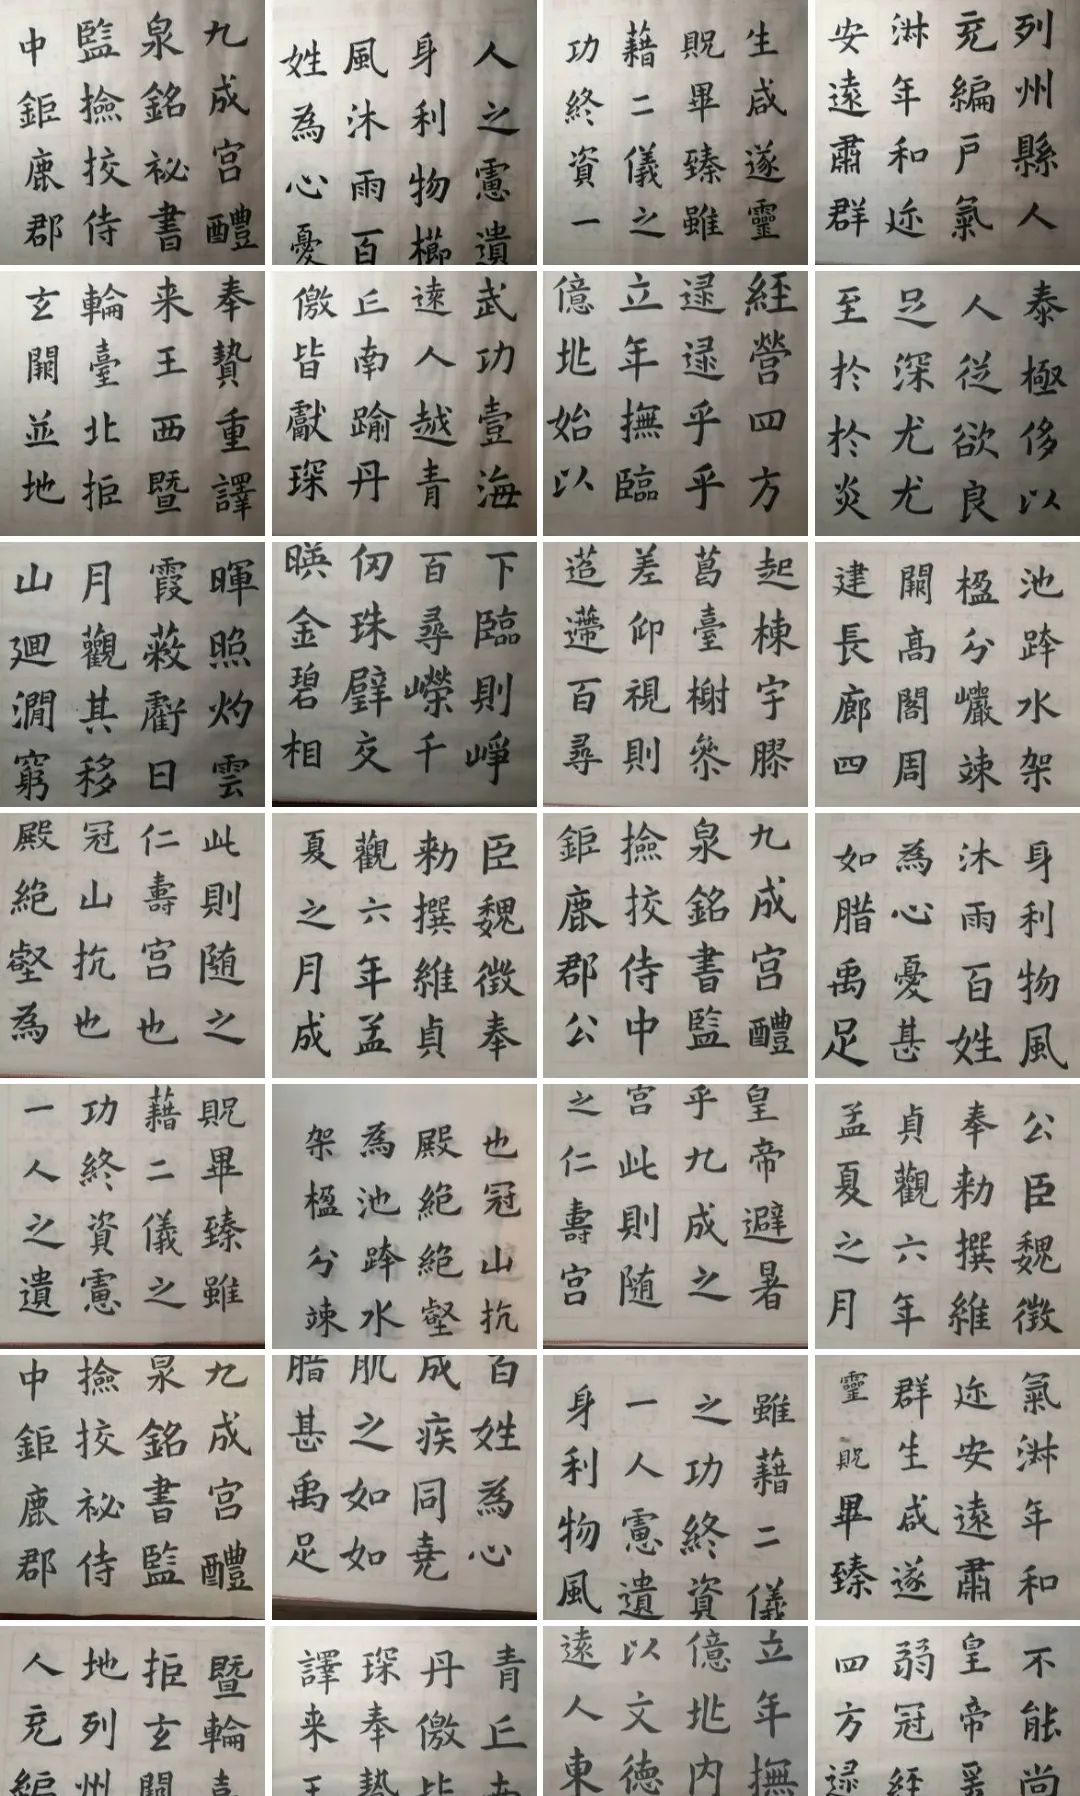 九成宫醴
泉銘祕書
監撿挍侍
中鉅鹿郡
人之憲遺
身利物櫛
風沐雨百
姓為心憂
生咸遂靈
貺畢臻雖
藉二儀之
功終資一
列州縣人
充編戶氣
淋年和迩
安遠肅群
奉贄重譯
来王西暨
輪臺北拒
玄闕並地
武功壹海
遠人越青
丘南踰丹
儌皆獻琛
經營四方
逯逯乎乎
立年撫臨
億兆始以
泰極侈以
人従欲良
足深尤尤
至於於炎
暉照灼雲
霞蔽虧日
月觀其移
山廻澗窮
下臨則崢
百尋嶸千
仞珠璧交
暎金碧相
起棟宇膠
葛臺榭叅
差仰視則
迢遰百尋
池跨水架
楹分巖竦
闕髙閣周
建長廊四
此則随之
仁壽宫也
冠山抗也
殿絕壑為
臣魏徵奉
勑撰維貞
觀六年孟
夏之月成
九成宫醴
泉銘書監
撿挍侍中
鉅鹿郡公
身利物風
沐雨百姓
為心憂甚
如腊禹足
貺畢臻雖
藉二儀之
功終資憲
一人之遺
也冠山抗
殿絕絕壑
為池跨水
架楹分竦
皇帝避暑
乎九成之
宫此則随
之仁壽宫
公臣魏徵
奉勑撰維
貞觀六年
孟夏之月
九成宫醴
泉銘書監
撿挍祕侍
中鉅鹿郡
百姓為心
成疾同堯
肌之如如
腊甚禹足
雖藉二儀
之功終資
一人憲遺
身利物風
氣淋年和
迩安遠肅
群生咸遂
靈貺畢臻
暨輪臺
拒玄闕
地列州
人充編
青丘南
丹儌皆
琛奉贄
譯来王
立年撫
億兆内
以文德
遠人東
不能尚
皇帝爰
弱冠經
四方逯